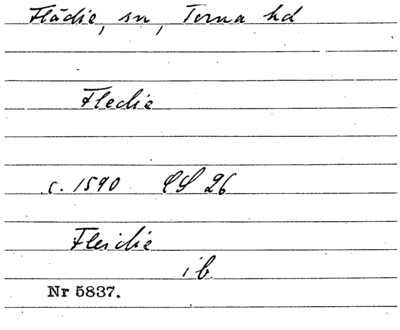 Flädie, sn, Torna hd
Fledie
c. 1590 LS 26
Fleidie
ib.
Nr 5837.